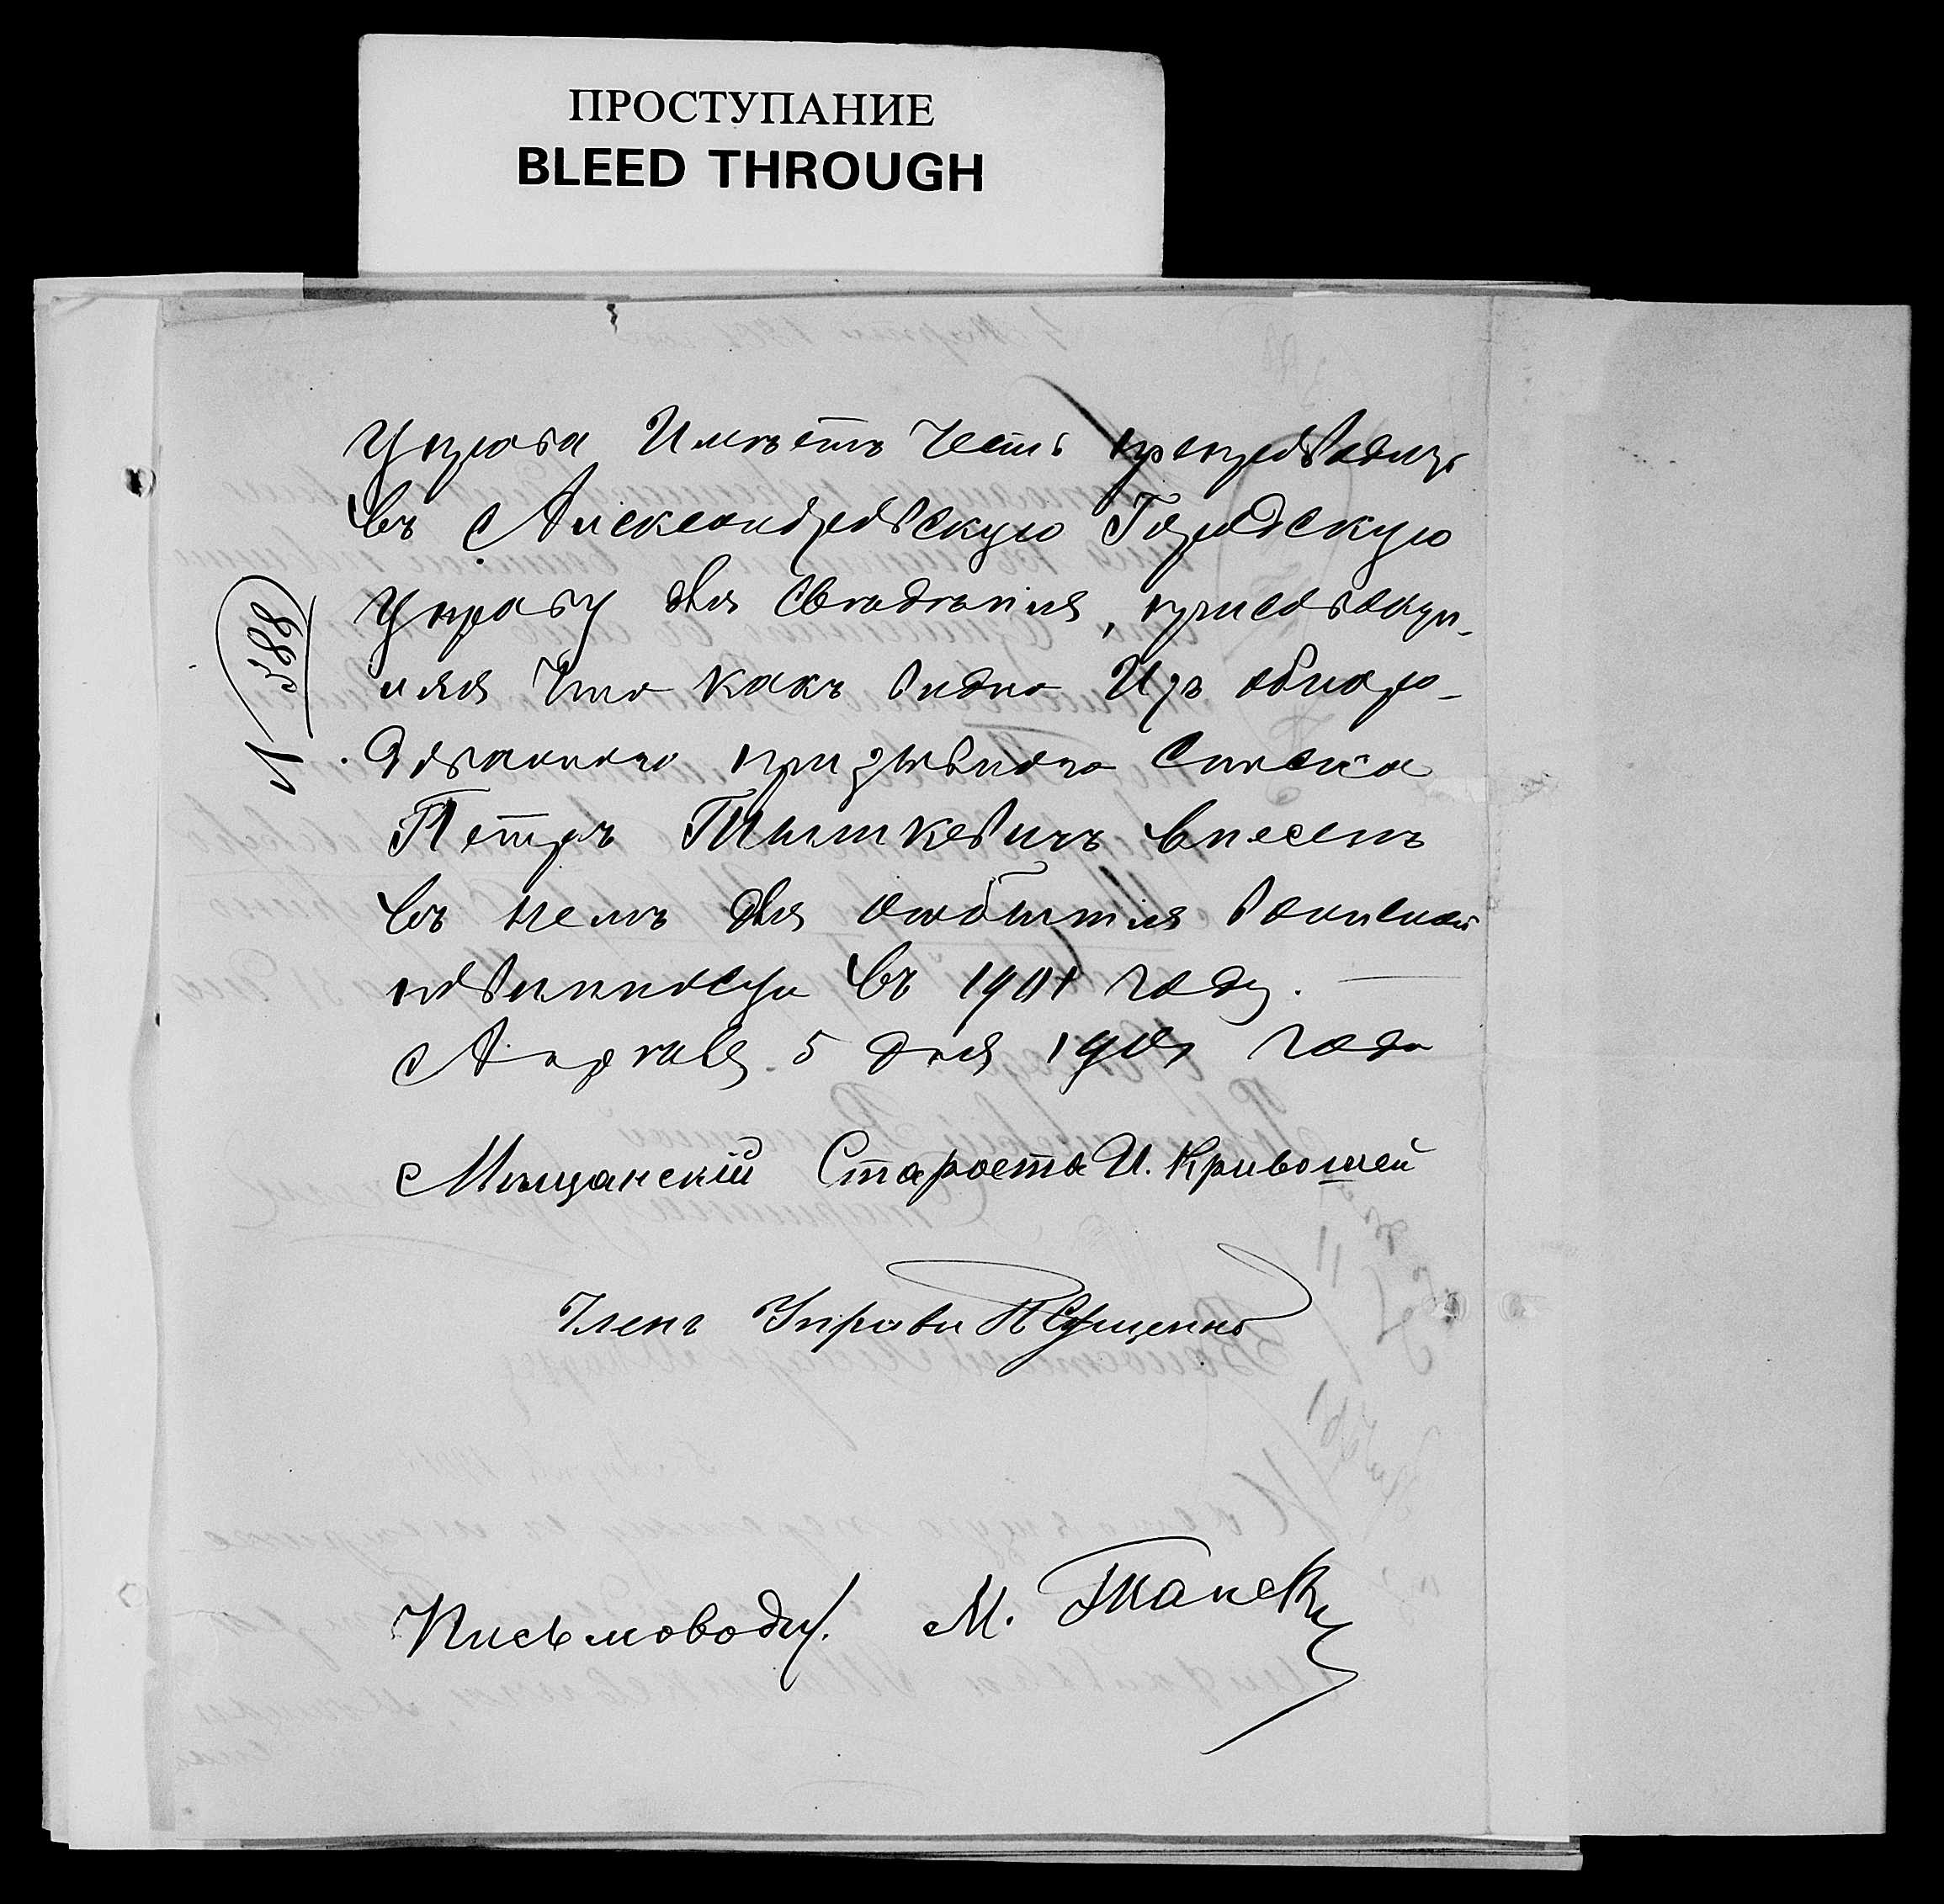 ПРОСТУПАНИЕ
BLEED THROUGH
Управа Имѣетъ Честь препроводить
въ Александровскую Городскую
Управу для свѣдѣнія, присовокуп-
ляя Что какъ видно Изъ обнаро-
дованнаго призывнаго Списка
Петръ Тышкевичъ внесенъ
въ немъ для отбытія воинской
повинности въ 1901 году.
Апрѣля 5 дня 1901 года
Мѣщанскій Староста И. Кривошей
Членъ Управы
Письмоводит. М.
588